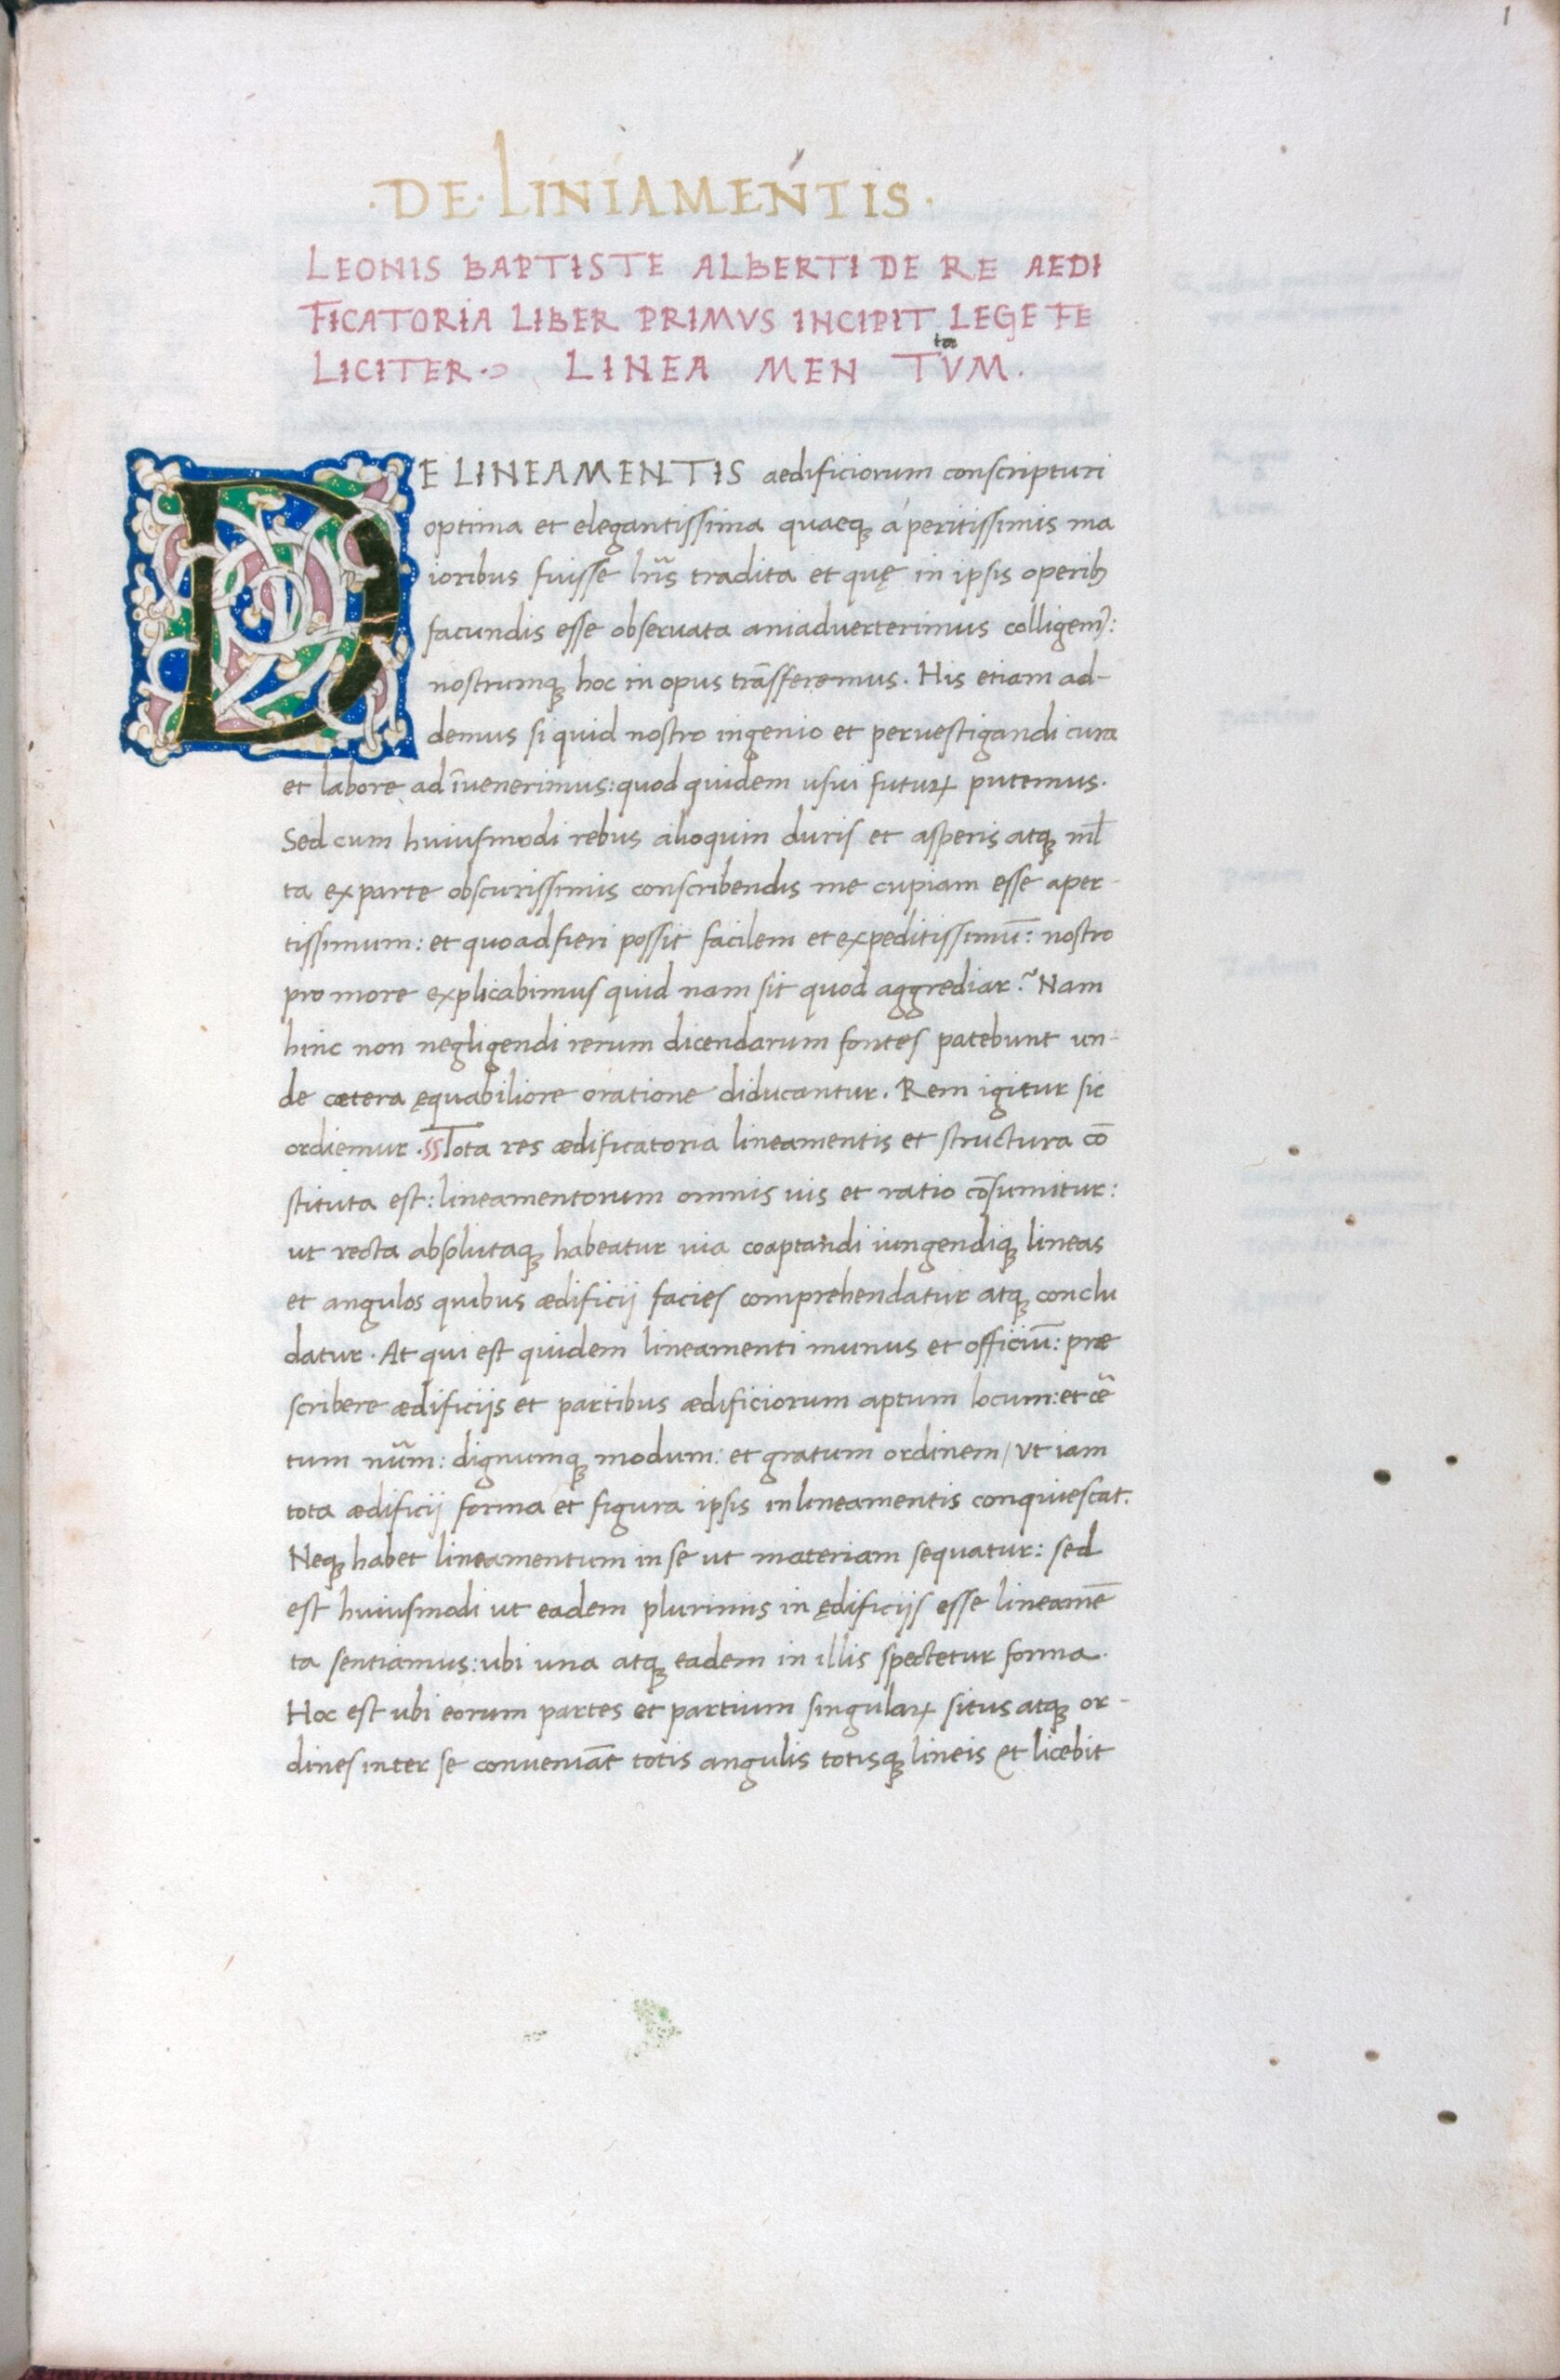 1
·DE·LINIAMENTIS·
LEONIS BAPTISTE ALBERTI DE RE AEDI
FICATORIA LIBER PRIMVS INCIPIT LEGE FE
LICITER· LINEA MEN TVM.
ta
DE LINEAMENTIS aedificiorum conscripturi
optima et elegantissima quaeq; á peritissimis ma
ioribus fuisse lr̃is tradita et quę in ipsis operibꝫ
facundis esse obseruata aniaduerterimus colligemꝰ:
nostrumq; hoc in opus trãsferemus. His etiam ad-
demus si quid nostro ingenio et peruestigandi cura
et labore ad ĩuenerimus: quod quidem usui futurꝝ putemus.
Sed cum huiusmodi rebus alioquin duris et asperis atq; ml̃
ta ex parte obscurissimis conscribendis me cupiam esse aper-
tissimum: et quoad fieri possit facilem et expeditissimũ: nostro
pro more explicabimus quid nam sit quod aggrediar? Nam
hinc non negligendi rerum dicendarum fontes patebunt un-
de cætera ęquabiliore oratione diducantur. Rem igitur sic
ordiemur. Tota res ædificatoria lineamentis et structura cõ
stituta est: lineamentorum omnis uis et ratio cõsumitur:
ut recta absolutaq; habeatur uia coaptandi iungendiq; lineas
et angulos quibus ædificij facies comprehendatur atq; conclu
datur. At qui est quidem lineamenti munus et officiũ: præ
scribere ædificijs et partibus ædificiorum aptum locum: et cẽ
tum nũm: dignumq; modum: et gratum ordinem/ ut iam
tota ædificij forma et figura ipsis in lineamentis conquiescat.
Neq; habet lineamentum in se ut materiam sequatur: sed
est huiusmodi ut eadem plurimis in ędificijs esse lineamẽ
ta sentiamus: ubi una atq; eadem in illis spectetur forma.
Hoc est ubi eorum partes et partium singularꝝ situs atq; or-
dines inter se conueniãt totis angulis totisq; lineis et licebit